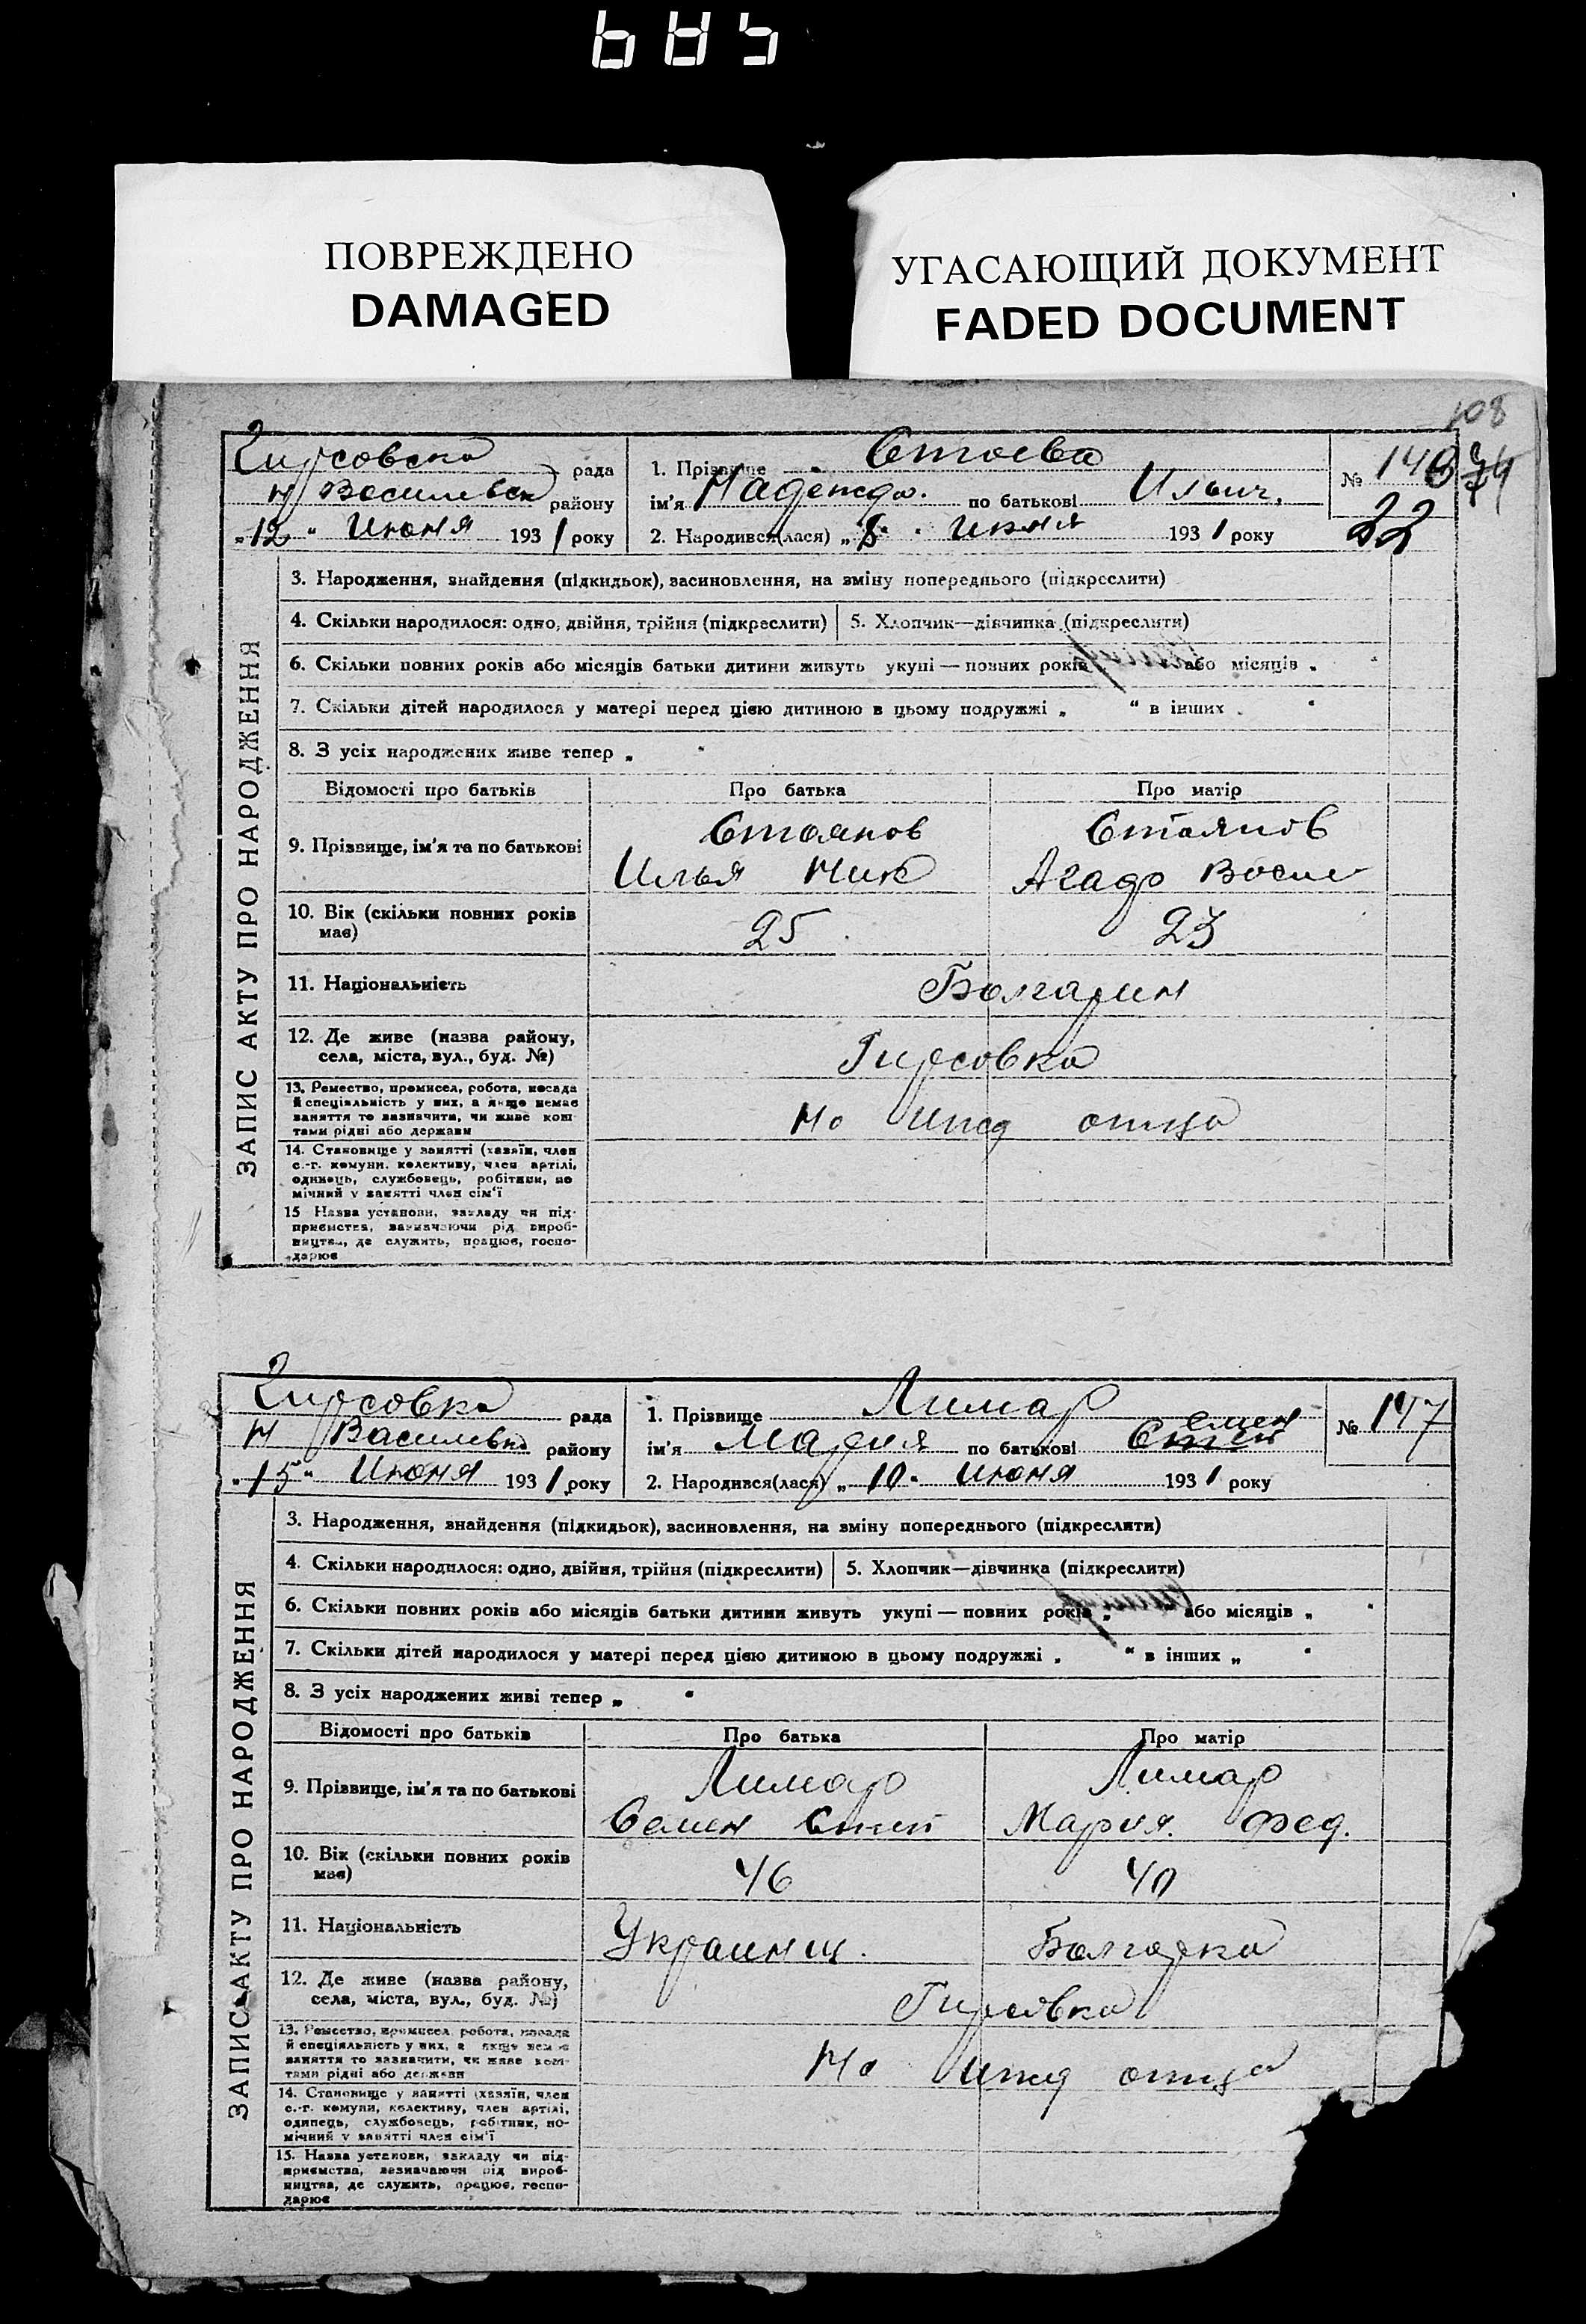 ПОВРЕЖДЕНО
DAMAGED
УГАСАЮЩИЙ ДОКУМЕНТ
FADED DOCUMENT
108
74
ЗАПИС АКТУ ПРО НАРОДЖЕННЯ
Гирсовска рада
Н Василевск району
„12“ Июня 1931 року
1. Прізвище Стоева
ім'я Надежда. по батькові Ильич.
2. Народився(лася) „8“ Июня 1931 року
№ 146
22
3. Народження, знайдення (підкидьок), засиновлення, на зміну попереднього (підкреслити)
4. Скільки народилося: одно, двійня, трійня (підкреслити) 5. Хлопчик—дівчинка (підкреслити)
6. Скільки повних років або місяців батьки дитини живуть укупі — повних років або місяців „ “
7. Скільки дітей народилося у матері перед цією дитиною в цьому подружжі „ “ в інших „ “
8. З усіх народжених живе тепер „ “
Відомості про батьків Про батька Про матір
9. Прізвище, ім'я та по батькові Стоянов Стоянов
Илья Ник Агаф Васил
10. Вік (скільки повних років має) 25 23
11. Національність Болгарин
12. Де живе (назва району, села, міста, вул., буд. №) Гирсовка
13. Ремество, промисел, робота, посада
й спеціяльність у них, а якщо немає
заняття то зазначити, чи живе кош-
тами рідні або держави
На ижд отца
14. Становище у занятті (хазяїн, член
с.-г. комуни, колективу, член артілі,
одинець, службовець, робітник, по-
мічний у занятті член сім'ї
15 Назва установи, закладу чи під-
приємства, зазначаючи рід вироб-
ництва, де служить, працює, госпо-
дарює
ЗАПИС АКТУ ПРО НАРОДЖЕННЯ
Гирсовка рада
Н Василевка району
„15“ Июня 1931 року
1. Прізвище Лимар
ім'я Мария по батькові Семен
2. Народився(лася) „10“ Июня 1931 року
№ 147
3. Народження, знайдення (підкидьок), засиновлення, на зміну попереднього (підкреслити)
4. Скільки народилося: одно, двійня, трійня (підкреслити) 5. Хлопчик—дівчинка (підкреслити)
6. Скільки повних років або місяців батьки дитини живуть укупі — повних років „ або місяців „ “
7. Скільки дітей народилося у матері перед цією дитиною в цьому подружжі „ “ в інших „ “
8. З усіх народжених живі тепер „ “
Відомості про батьків Про батька Про матір
9. Прізвище, ім'я та по батькові Лимар Лимар
Семен Мария. Фед.
10. Вік (скільки повних років має) 46 40
11. Національність Украинц. Болгарка
12. Де живе (назва району, села, міста, вул., буд. №) Гирсовка
13. Ремество, промисел робота, посада
й спеціяльність у них, а якщо немає
заняття то зазначити, чи живе кош-
тами рідні або держави
На ижд отца
14. Становище у занятті (хазяїн, член
с.-г. комуни, колективу, член артілі,
одинець, службовець, робітник, по-
мічний у занятті член сім'ї
15. Назва установи, закладу чи під-
приємства, зазначаючи рід вироб-
ництва, де служить, працює, госпо-
дарює